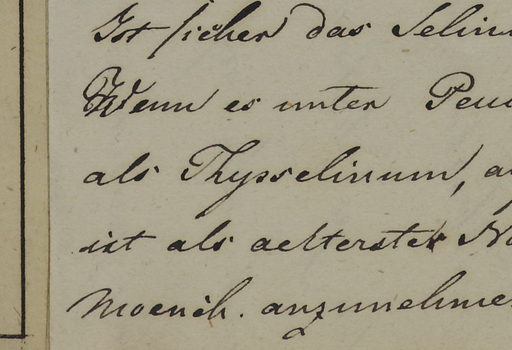 Ist sicher das Selin
Wenn es unter Peu
als Thysselinum, a
ist als aeltester N
Moench. anzunehme